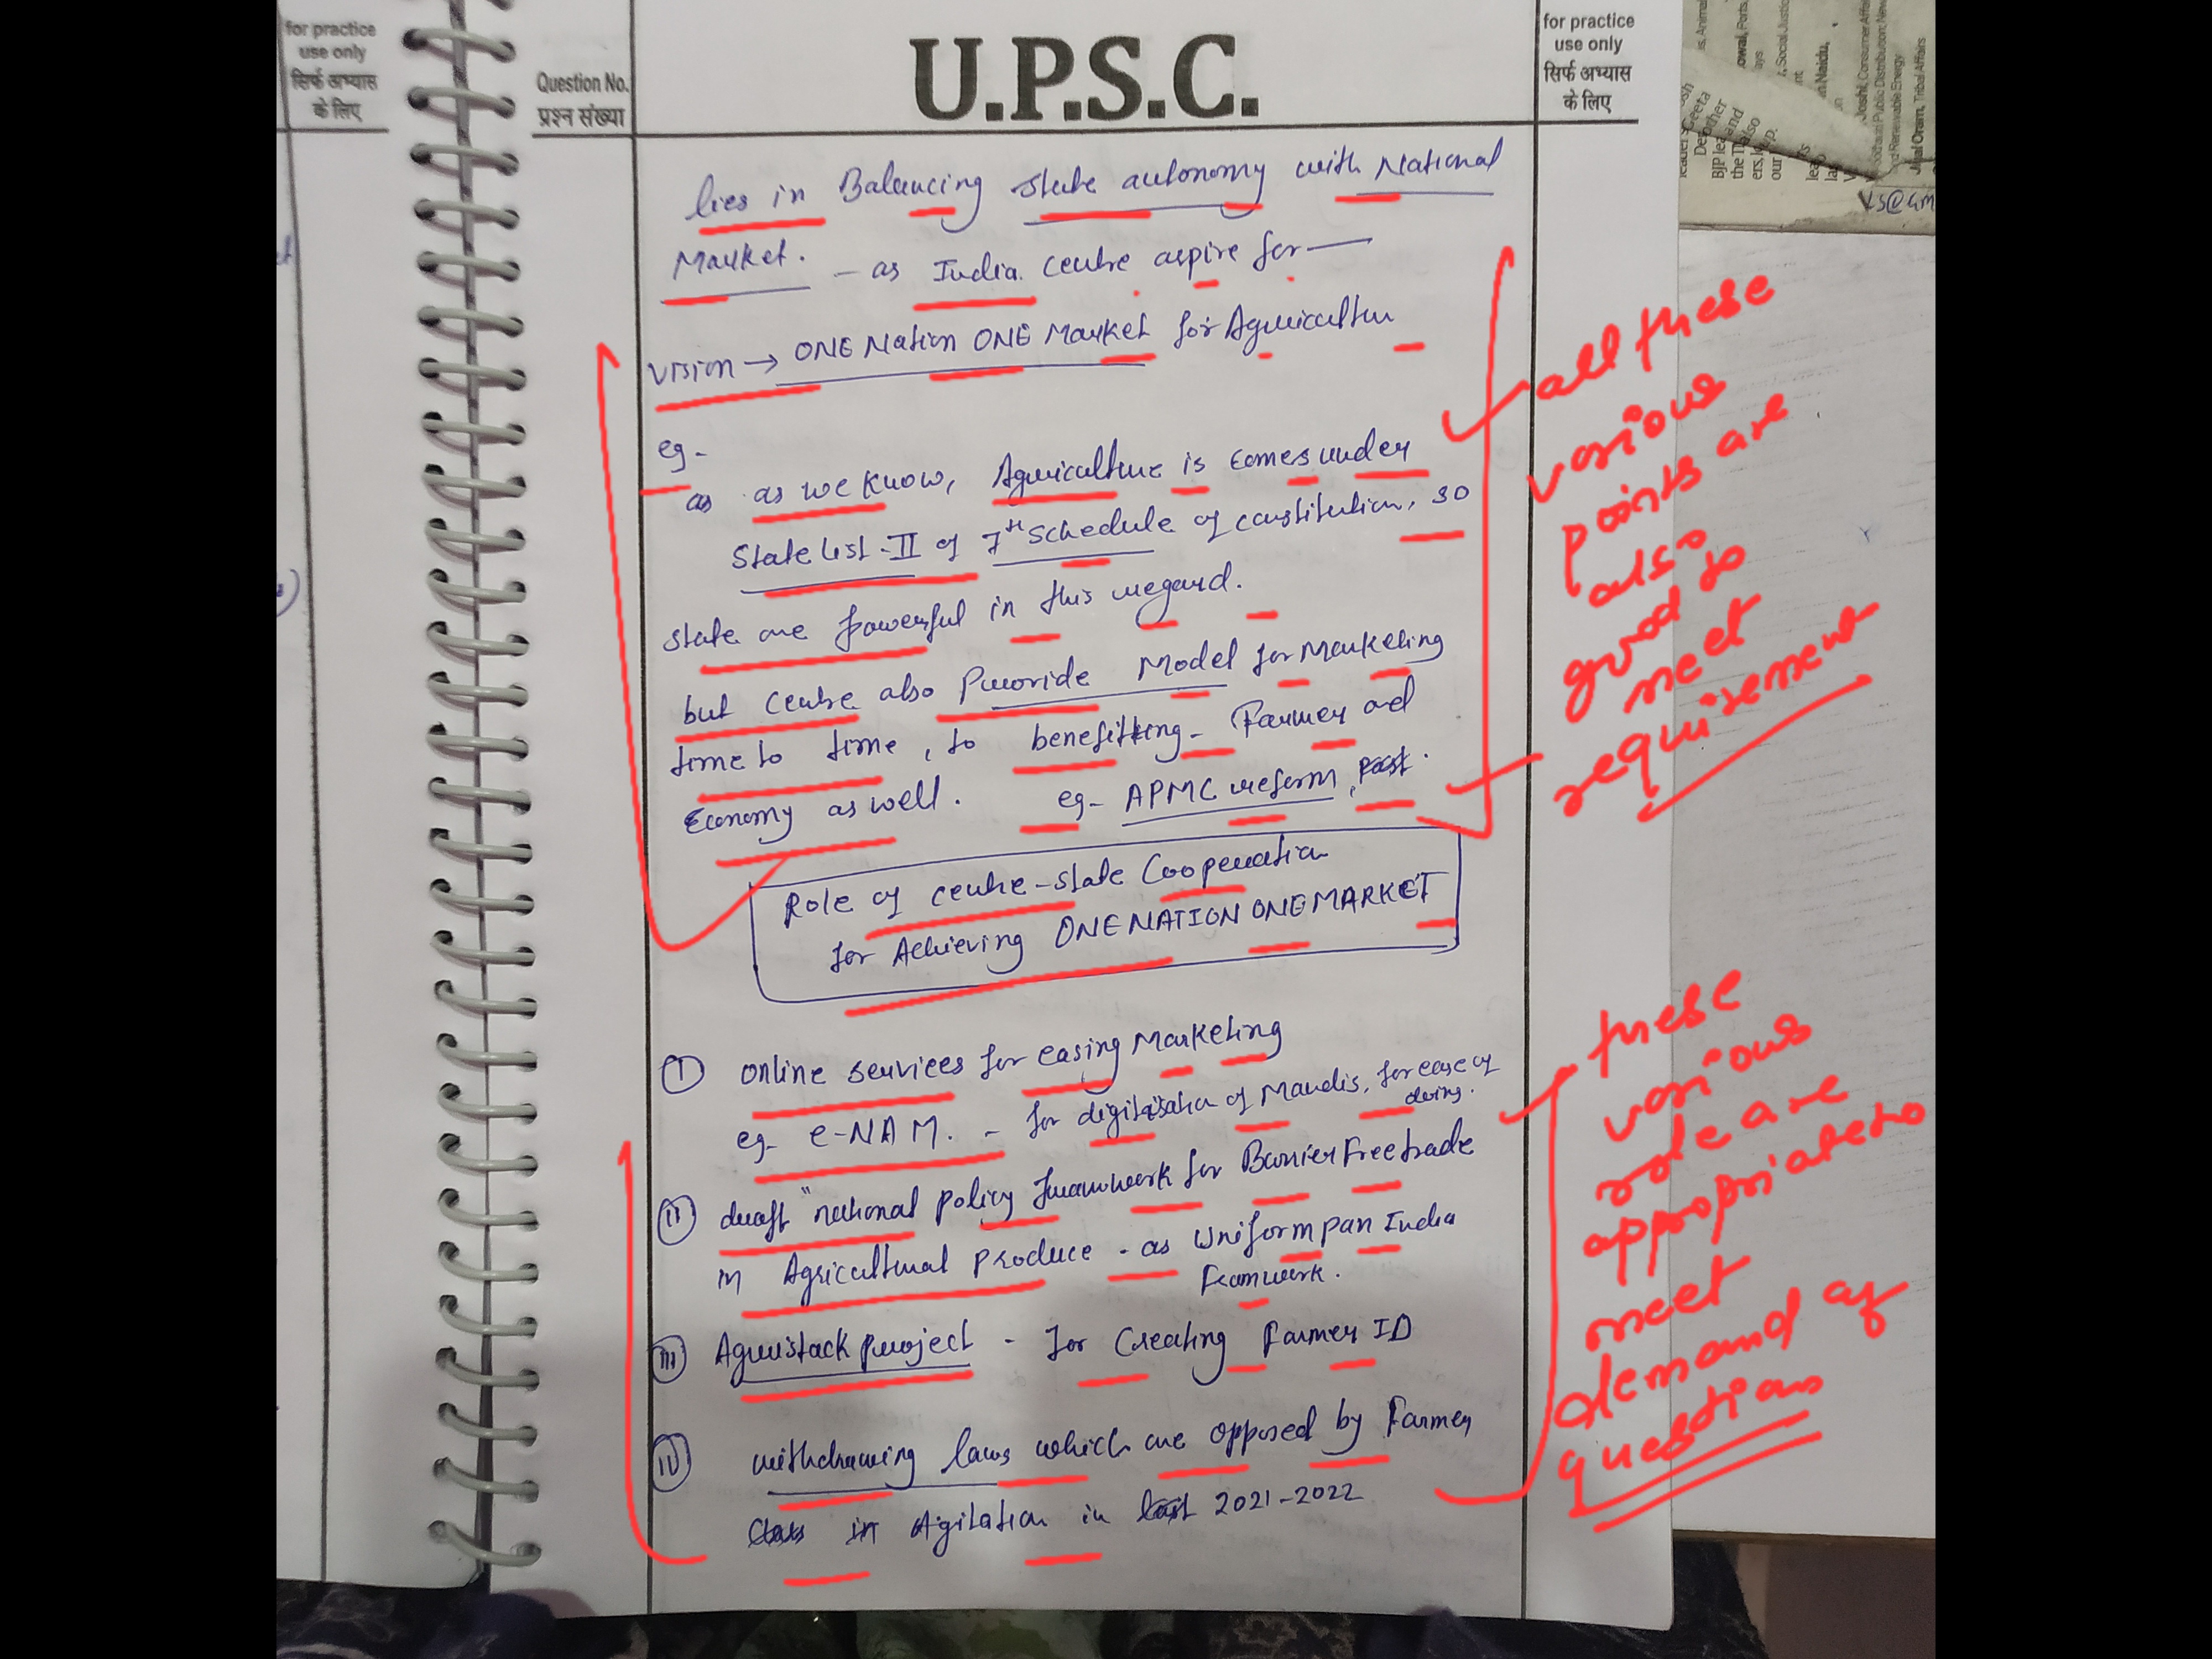 for practice
use only
सिर्फ अभ्यास
के लिए
Question No.
प्रश्न संख्या
U.P.S.C.
for practice
use only
सिर्फ अभ्यास
के लिए
lies in Balancing state autonomy with National
Market. - as India centre aspire for —
vision → ONE Nation ONE Market for Agricultur
eg -
as as we know, Agriculture is comes under
State list - II of 7th Schedule of constitution, so
state are powerful in this regard.
but Centre also Provide Model for Marketing
time to time, to benefitting - Farmer and
Economy as well. eg - APMC reform, past.
Role of centre-state Cooperation
for Achieving ONE NATION ONE MARKET
(I) online services for easing Marketing
eg - e-NAM. - for digitisation of Mandis, for ease of
doing.
(II) draft "national policy framework for Barrier Free trade
in Agricultural Produce - as Uniform pan India
framwork.
(III) Agristack project - for Creating Farmer ID
(IV) withdrawing laws which are opposed by Farmer
in Agitation in 2021-2022
all these
various
points are
also
good to
meet
requirement
these
various
role are
appropriate to
meet
demand of
question